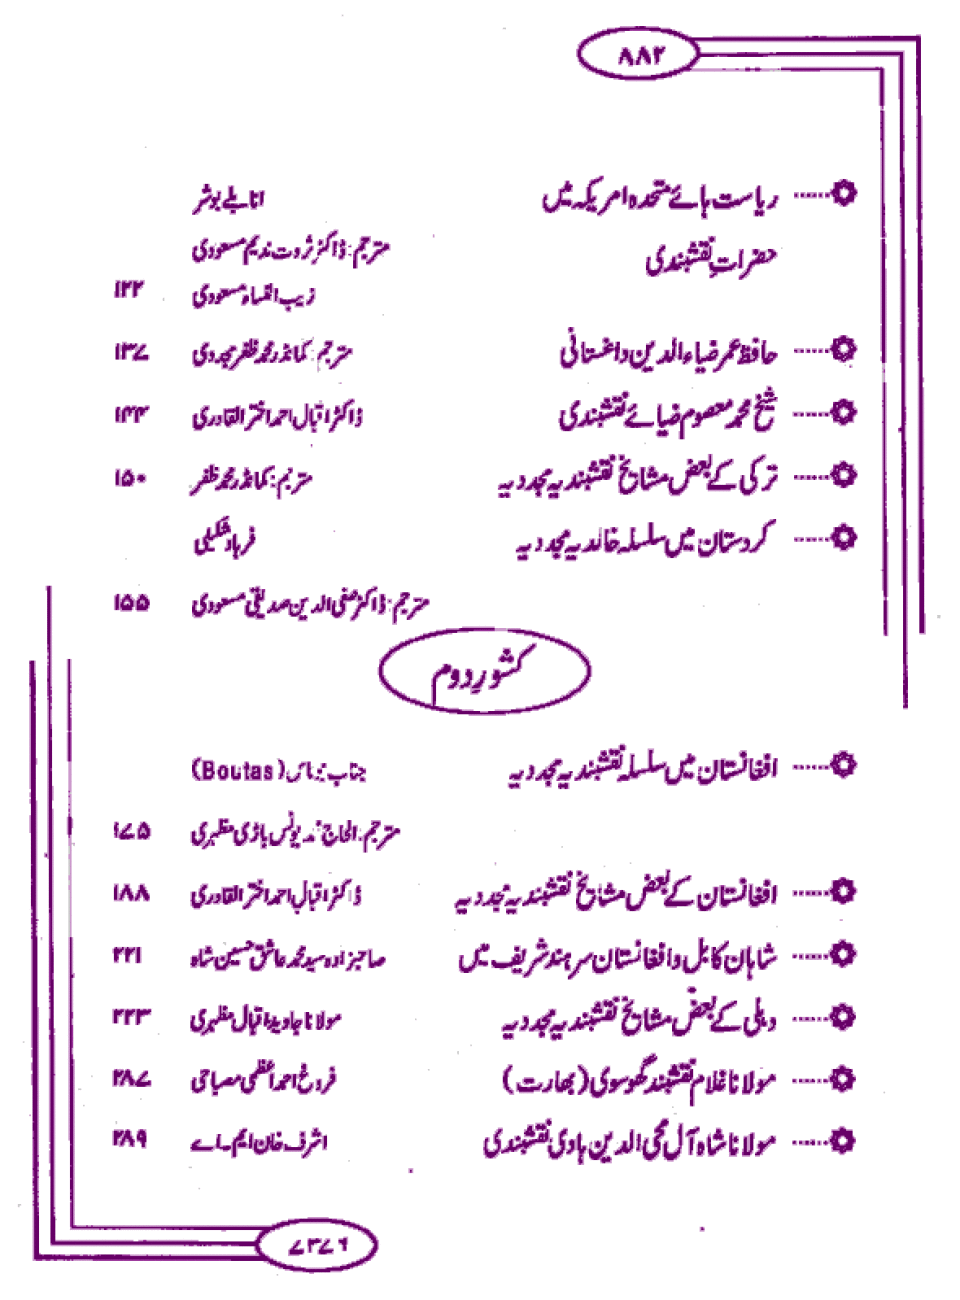 ۸۸۲
ریاست ہائے متحدہ امریکہ میں انا بلے بوشر
حضراتِ نقشبندی مترجم: ڈاکٹر ثروت ندیم مسعودی
زیب النساء مسعودی ۱۲۲
حافظ عمر ضیاء الدین داغستانی مترجم: کمانڈر محمد ظفر مجددی ۱۳۷
شیخ محمد معصوم ضیائے نقشبندی ڈاکٹر اقبال احمد اختر القادری ۱۴۳
ترکی کے بعض مشایخ نقشبندیہ مجددیہ مترجم: کمانڈر محمد ظفر ۱۵۰
کردستان میں سلسلہ خالدیہ مجددیہ فرہاد شکیلی
مترجم: ڈاکٹر صفی الدین صدیقی مسعودی ۱۵۵
کشورِ دوم
افغانستان میں سلسلہ نقشبندیہ مجددیہ جناب (Boutas)
مترجم: الحاج یونس باڑی مظہری ۱۷۵
افغانستان کے بعض مشایخ نقشبندیہ مجددیہ ڈاکٹر اقبال احمد اختر القادری ۱۸۸
شاہان کابل و افغانستان سرہند شریف میں صاحبزادہ سید محمد عاشق حسین شاہ ۲۲۱
دہلی کے بعض مشایخ نقشبندیہ مجددیہ مولانا جاوید اقبال مظہری ۲۲۳
مولانا غلام نقشبند گھوسوی (بھارت) فروغ احمد اعظمی مصباحی ۲۸۷
مولانا شاہ آل محی الدین ہادی نقشبندی اشرف خان ایم۔اے ۲۸۹
۷۳۷۶